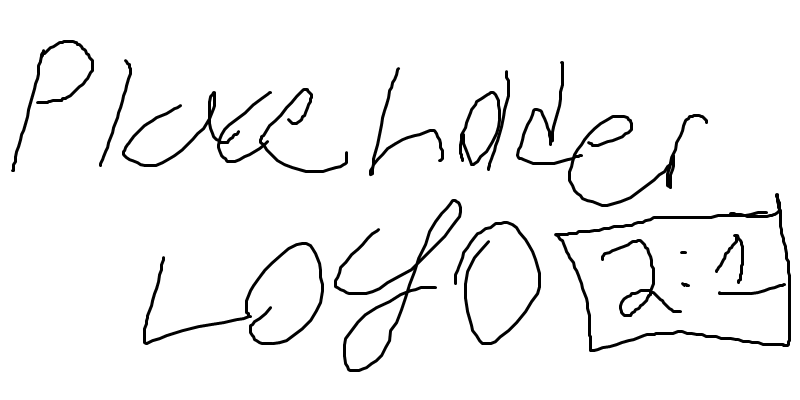 Placeholder
LOGO 2:1